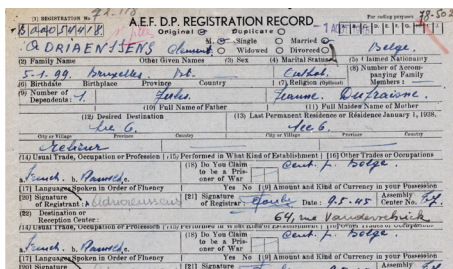 (1) REGISTRATION No
A.E.F. D.P. REGISTRATION RECORD
For coding purposes
Original Duplicate
M. Single Married
ADRIAENSSENS Clement. F. Widowed Divorced Belge.
(2) Family Name Other Given Names (3) Sex (4) Marital Status (5) Claimed Nationality
5-1-99. Bruxelles. Bt. Cathol. (8) Number of Accompanying Family Members:
(6) Birthdate Birthplace Province Country (7) Religion (Optional)
(9) Number of Dependents: 1. Jules. Jeanne Dufraisne.
(10) Full Name of Father (11) Full Maiden Name of Mother
(12) Desired Destination (13) Last Permanent Residence or Résidence January 1, 1938.
See 6. See 6.
City or Village Province Country City or Village Province Country
(14) Usual Trade, Occupation or Profession (15) Performed in What Kind of Establishment (16) Other Trades or Occupations
a. French. b. (18) Do You Claim to be a Prisoner of War Belge.
(17) Languages Spoken in Order of Fluency Yes No (19) Amount and Kind of Currency in your Possession
(20) Signature of Registrant: (21) Signature of Registrar: Date: 9.5.45 Assembly Center No.
(22) Destination or Reception Center: 64, rue
(14) Usual Trade, Occupation or Profession (15) Performed in What Kind of Establishment (16) Other Trades or Occupations
a. French. b. (18) Do You Claim to be a Prisoner of War Belge.
(17) Languages Spoken in Order of Fluency Yes No (19) Amount and Kind of Currency in your Possession
(20) Signature (21) Signature Assembly